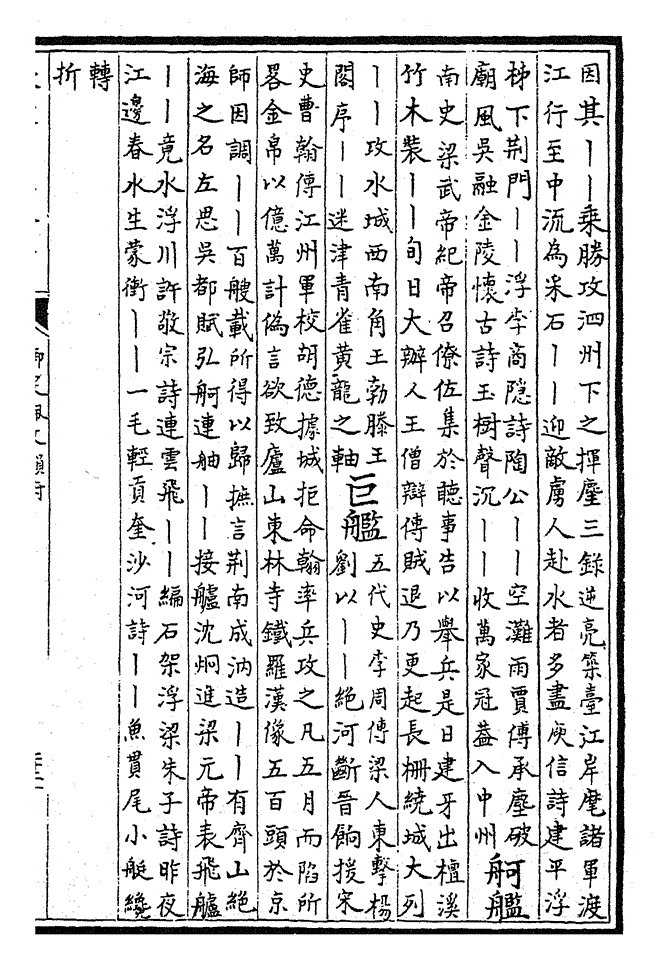 因其丨丨乘勝攻泗州下之揮麈三錄逆亮築臺江岸麾諸軍渡
江行至中流為采石丨丨迎敵虜人赴水者多盡庾信詩建平浮
梯下荆門丨丨浮李商隱詩陶公丨丨空灘雨賈傅承塵破
廟風吳融金陵懷古詩玉樹聲沉丨丨收萬家冠葢入中州
舸艦
南史梁武帝紀帝召僚佐集於聽事告以舉兵是日建牙出檀溪
竹木裝丨丨旬日大辦人王僧辯傳賊退乃更起長柵繞城大列
丨丨攻水城西南角王勃滕王
閣序丨丨迷津青雀黃龍之軸
巨艦
五代史李周傳梁人東擊楊
劉以丨丨絕河斷晉餉援宋
史曹翰傳江州軍校胡德據城拒命翰率兵攻之凡五月而陷所
畧金帛以億萬計偽言欲致廬山東林寺鐵羅漢像五百頭於京
師因調丨丨百艘載所得以歸摭言荆南成汭造丨丨有齊山絕
海之名左思吳都賦弘舸連舳丨丨接艫沈炯進梁元帝表飛艫
丨丨竟水浮川許敬宗詩連雲飛丨丨編石架浮梁朱子詩昨夜
江邊春水生蒙衝丨丨一毛輕貢奎沙河詩丨丨魚貫尾小艇纔
轉
折